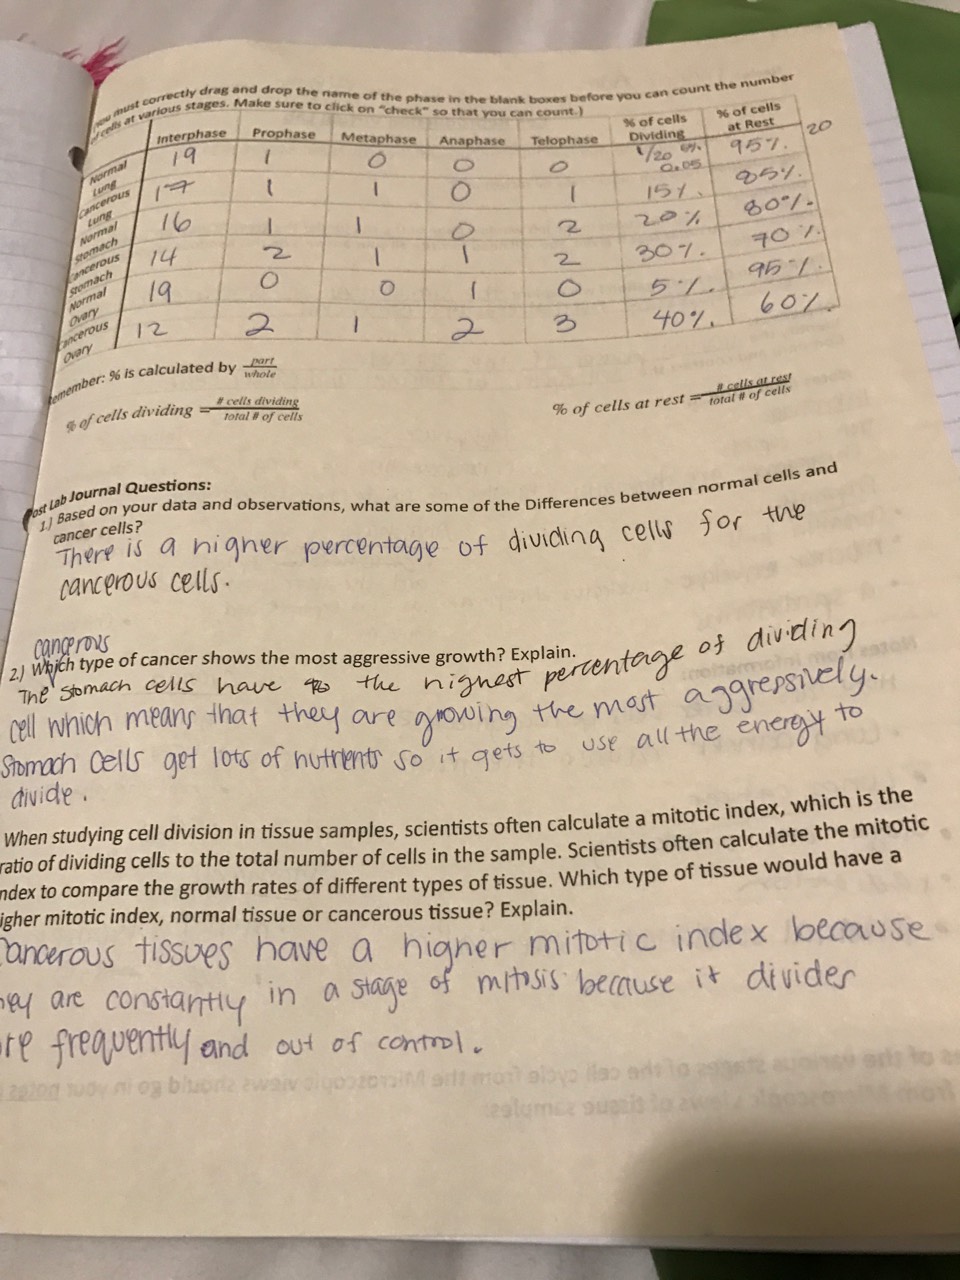 you must correctly drag and drop the name of the phase in the blank boxes before you can count the number
of cells at various stages. Make sure to click on "check" so that you can count.)
Interphase Prophase Metaphase Anaphase Telophase % of cells Dividing % of cells at Rest 20
Normal Lung 19 1 0 0 0 1/20 0.05 95%.
Cancerous Lung 17 1 1 0 1 15%. 85%.
Normal Stomach 16 1 1 0 2 20% 80%.
Cancerous Stomach 14 2 1 1 2 30%. 70%.
Normal Ovary 19 0 0 1 0 5%. 95%.
Cancerous Ovary 12 2 1 2 3 40%. 60%.
Remember: % is calculated by part/whole
% of cells dividing = # cells dividing/total # of cells
% of cells at rest = # cells at rest/total # of cells
Post Lab Journal Questions:
1.) Based on your data and observations, what are some of the Differences between normal cells and
cancer cells?
There is a higher percentage of dividing cells for the
cancerous cells.
2.) Which type of cancer shows the most aggressive growth? Explain.
cancerous
The stomach cells have the highest percentage of dividing
cell which means that they are growing the most aggressively.
Stomach cells get lots of nutrients so it gets to use all the energy to
divide.
When studying cell division in tissue samples, scientists often calculate a mitotic index, which is the
ratio of dividing cells to the total number of cells in the sample. Scientists often calculate the mitotic
index to compare the growth rates of different types of tissue. Which type of tissue would have a
higher mitotic index, normal tissue or cancerous tissue? Explain.
Cancerous tissues have a higher mitotic index because
they are constantly in a stage of mitosis because it divides
more frequently and out of control.